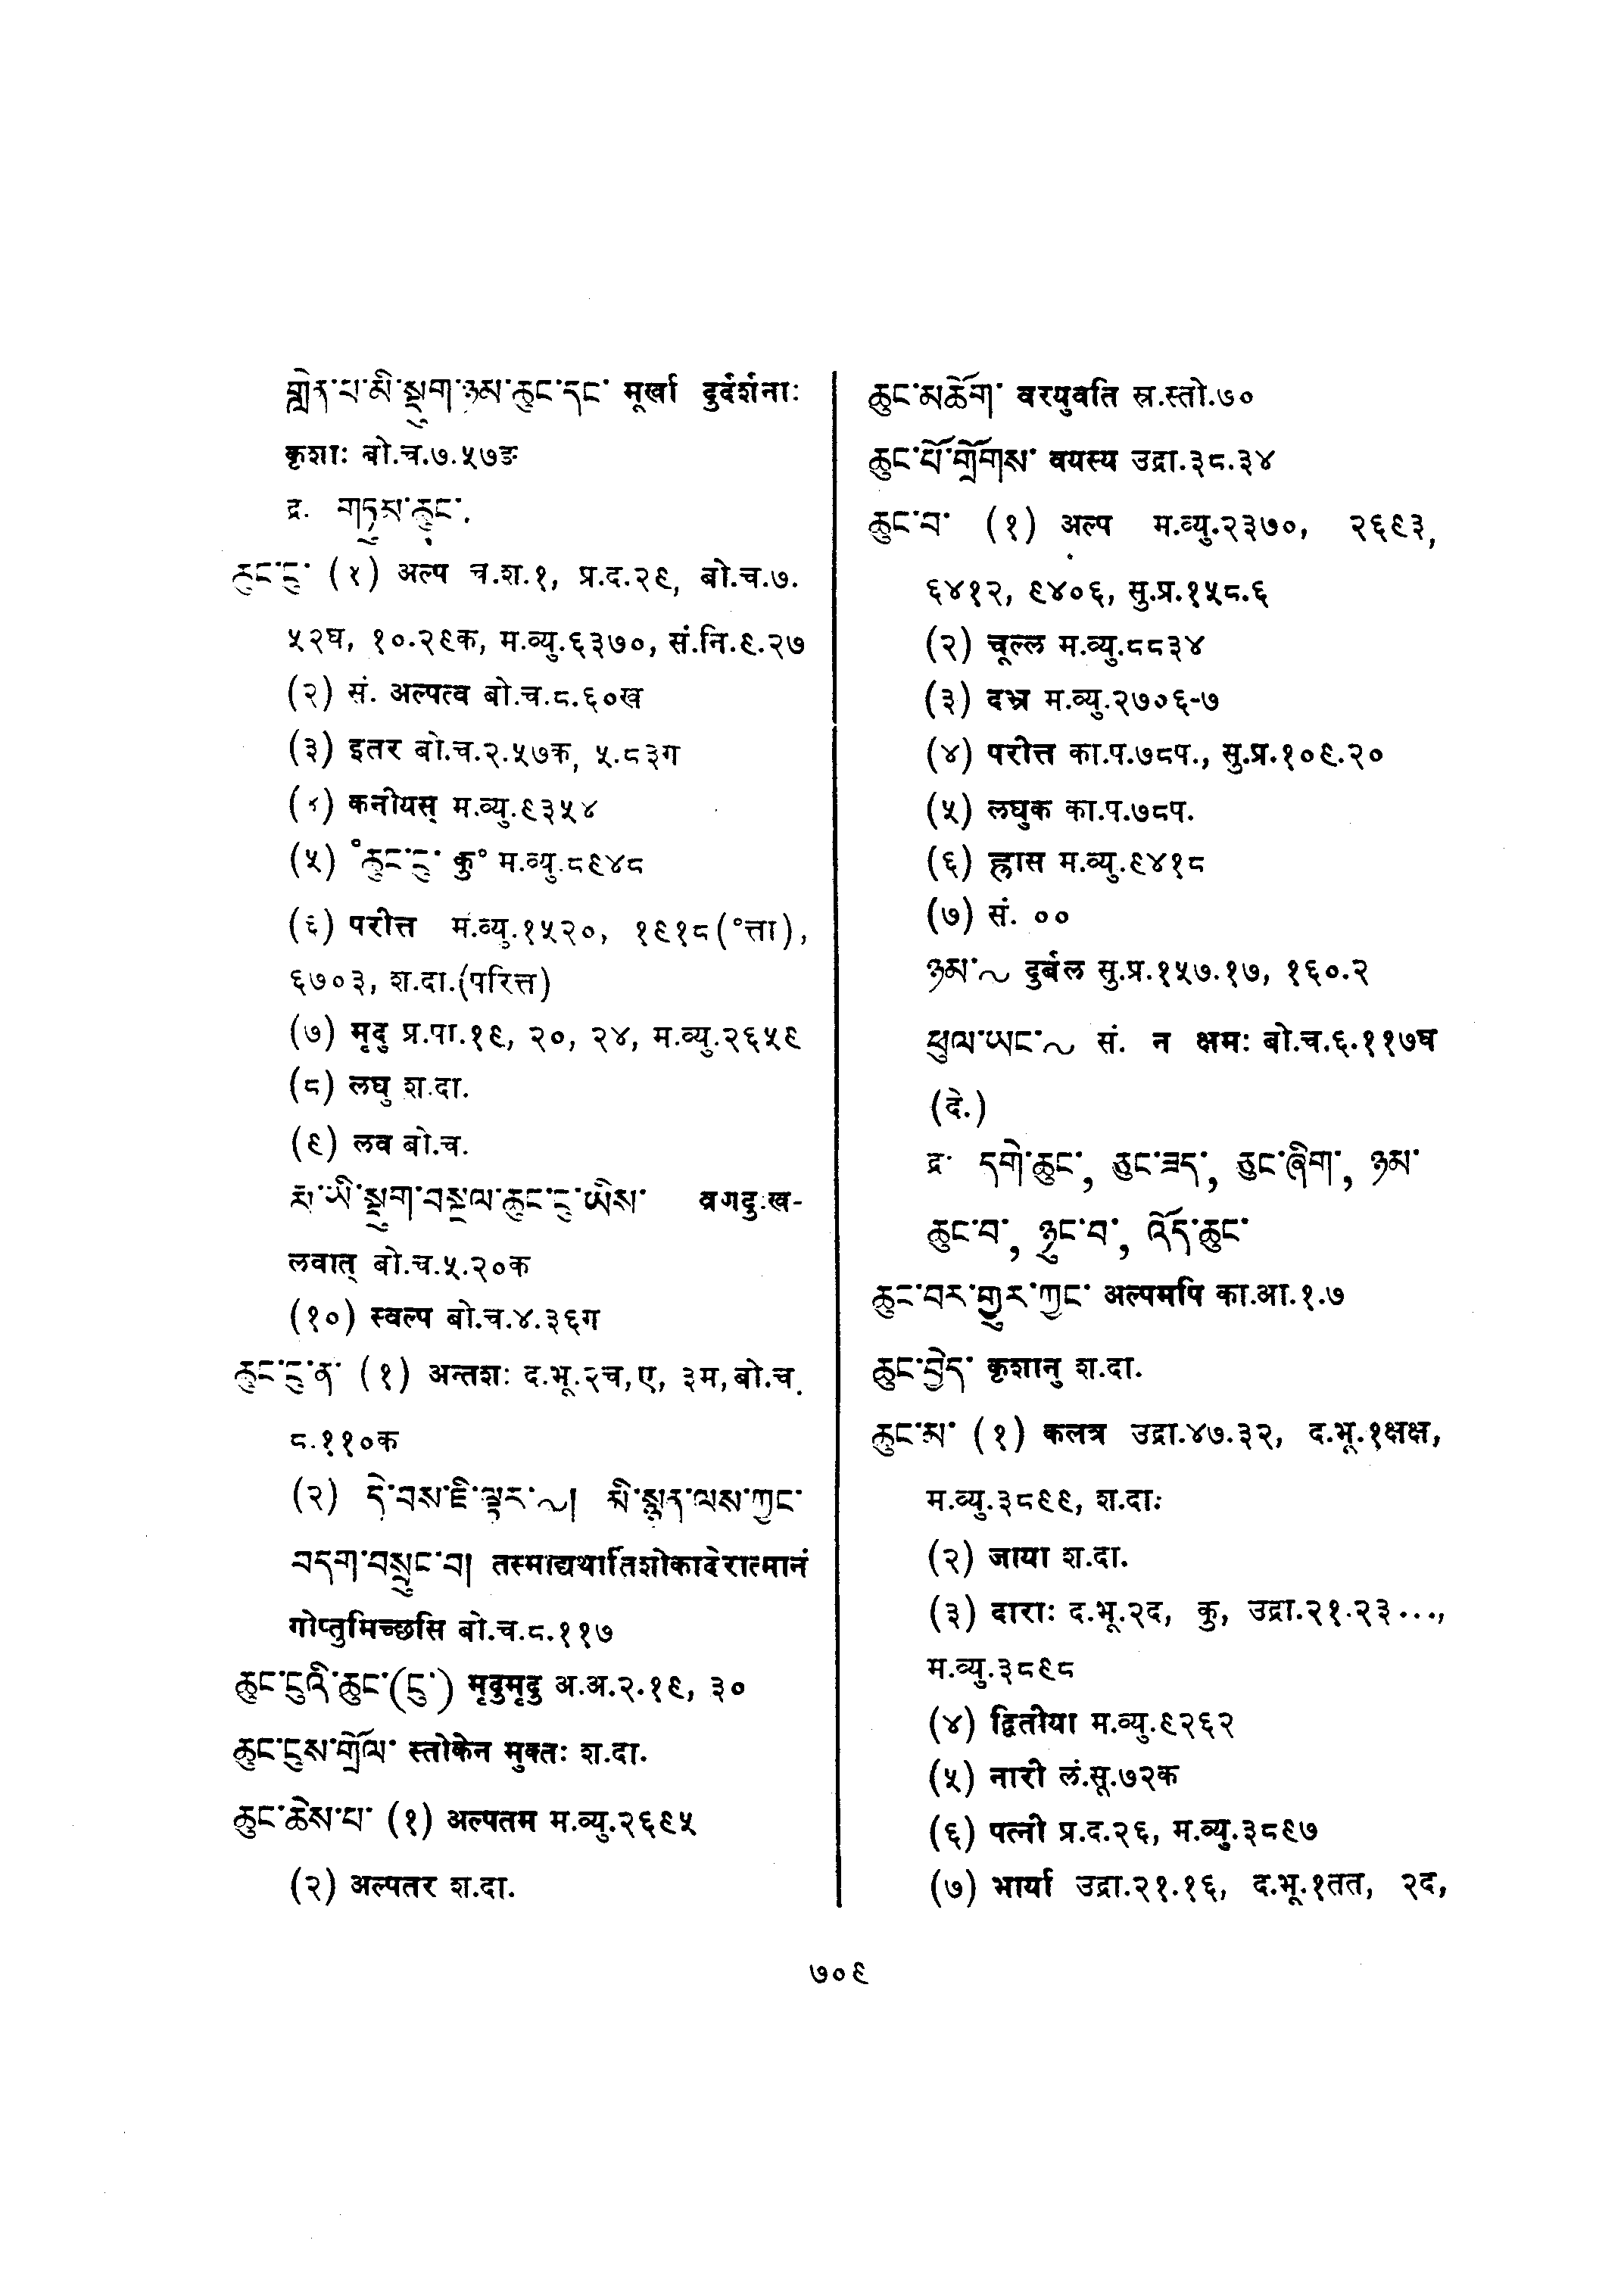 གླེན་པ་མི་སྡུག་ཉམ་ཆུང་དང་ मूर्खा दुर्दर्शनाः
कृशाः बो.च.७.५७ङ
द्र. གཏུམ་ཆུང་.
ཆུང་ངུ་ (१) अल्प च.श.१, प्र.द.२९, बो.च.७.
५२घ, १०.२९क, म.व्यु.६३७०, सं.नि.९.२७
(२) सं. अल्पत्व बो.च.८.६०ख
(३) इतर बो.च.२.५७क, ५.८३ग
(४) कनीयस् म.व्यु.९३५४
(५) °ཆུང་ངུ་ कु° म.व्यु.८९४८
(६) परीत्त म.व्यु.१५२०, १९१८(°त्ता),
६७०३, श.दा.(परित्त)
(७) मृदु प्र.पा.१९, २०, २४, म.व्यु.२६५९
(८) लघु श.दा.
(९) लव बो.च.
རྨ་ཡི་སྡུག་བསྔལ་ཆུང་ངུ་ཡིས་ व्रणदुःख-
लवात् बो.च.५.२०क
(१०) स्वल्प बो.च.४.३६ग
ཆུང་ངུ་ན་ (१) अन्तशः द.भू.२च,ए, ३म,बो.च.
८.११०क
(२) དེ་བས་ཇི་ལྟར་~། མི་སྙན་ལས་ཀྱང་
བདག་བསྲུང་བ། तस्माद्यथार्तिशोकादेरात्मानं
गोप्तुमिच्छसि बो.च.८.११७
ཆུང་ངུའི་ཆུང་(ངུ་) मृदुमृदु अ.अ.२.१९, ३०
ཆུང་ངུས་གྲོལ་ स्तोकेन मुक्तः श.दा.
ཆུང་ཆེས་པ་ (१) अल्पतम म.व्यु.२६९५
(२) अल्पतर श.दा.
ཆུང་མཆོག་ वरयुवति स्र.स्तो.७०
ཆུང་པོ་གྲོགས་ वयस्य उद्रा.३८.३४
ཆུང་བ་ (१) अल्प म.व्यु.२३७०, २६९३,
६४१२, ९४०६, सु.प्र.१५८.६
(२) चूल्ल म.व्यु.८८३४
(३) दभ्र म.व्यु.२७०६-७
(४) परीत्त का.प.७८प., सु.प्र.१०९.२०
(५) लघुक का.प.७८प.
(६) ह्रास म.व्यु.९४१८
(७) सं. ००
ཉམ་~ दुर्बल सु.प्र.१५७.१७, १६०.२
ཕུལ་ཡང་~ सं. न क्षमः बो.च.६.११७घ
(दे.)
द्र. དགེ་ཆུང་, ཅུང་ཟད་, ཅུང་ཞིག་, ཉམ་
ཆུང་བ་, ཉུང་བ་, འདོད་ཆུང་
ཆུང་བར་གྱུར་ཀྱང་ अल्पमपि का.आ.१.७
ཆུང་བྱེད་ कृशानु श.दा.
ཆུང་མ་ (१) कलत्र उद्रा.४७.३२, द.भू.१क्षक्ष,
म.व्यु.३८९९, श.दाः
(२) जाया श.दा.
(३) दाराः द.भू.२द, कु, उद्रा.२१.२३...,
म.व्यु.३८९८
(४) द्वितीया म.व्यु.९२६२
(५) नारी लं.सू.७२क
(६) पत्नी प्र.द.२६, म.व्यु.३८९७
(७) भार्या उद्रा.२१.१६, द.भू.१तत, २द,
७०९